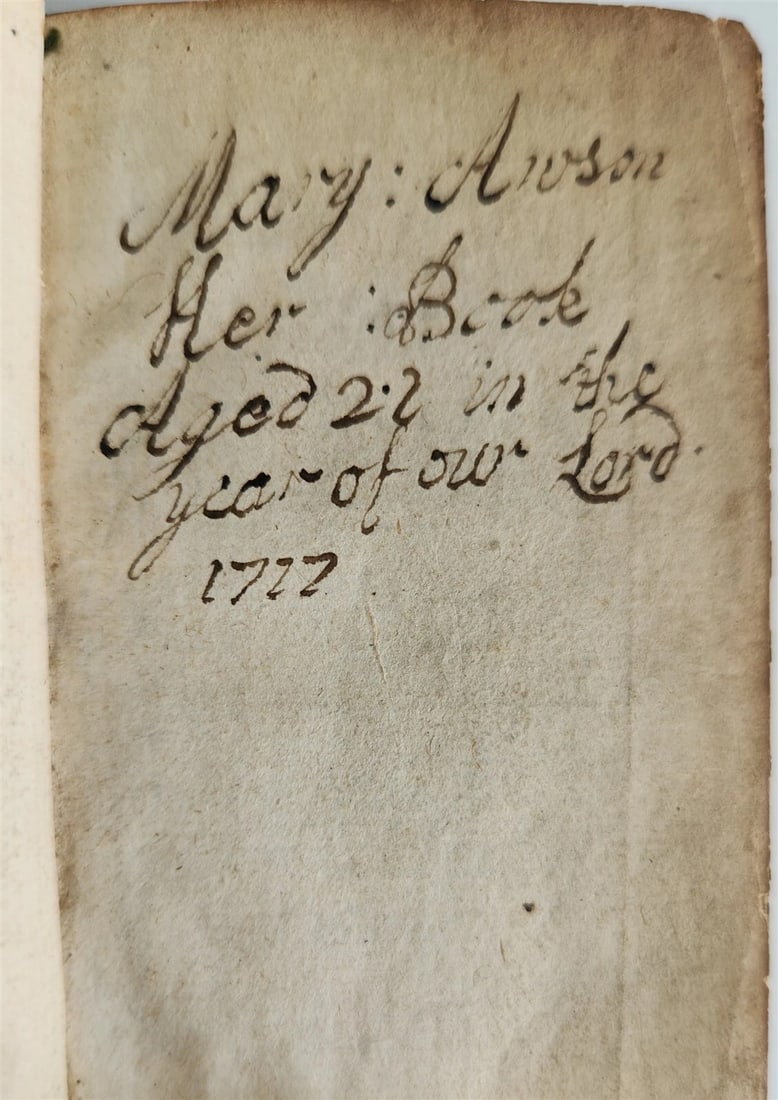 Mary : Awson
Her : Book
Aged 22 in the
year of our Lord
1777